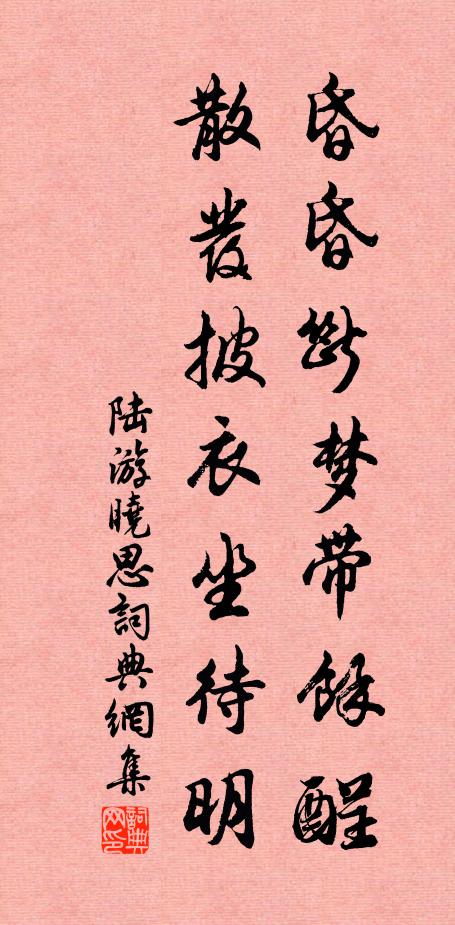 昏昏断梦带餘酲
散发披衣坐待明
陆游曉思詞典網集
詞典网印